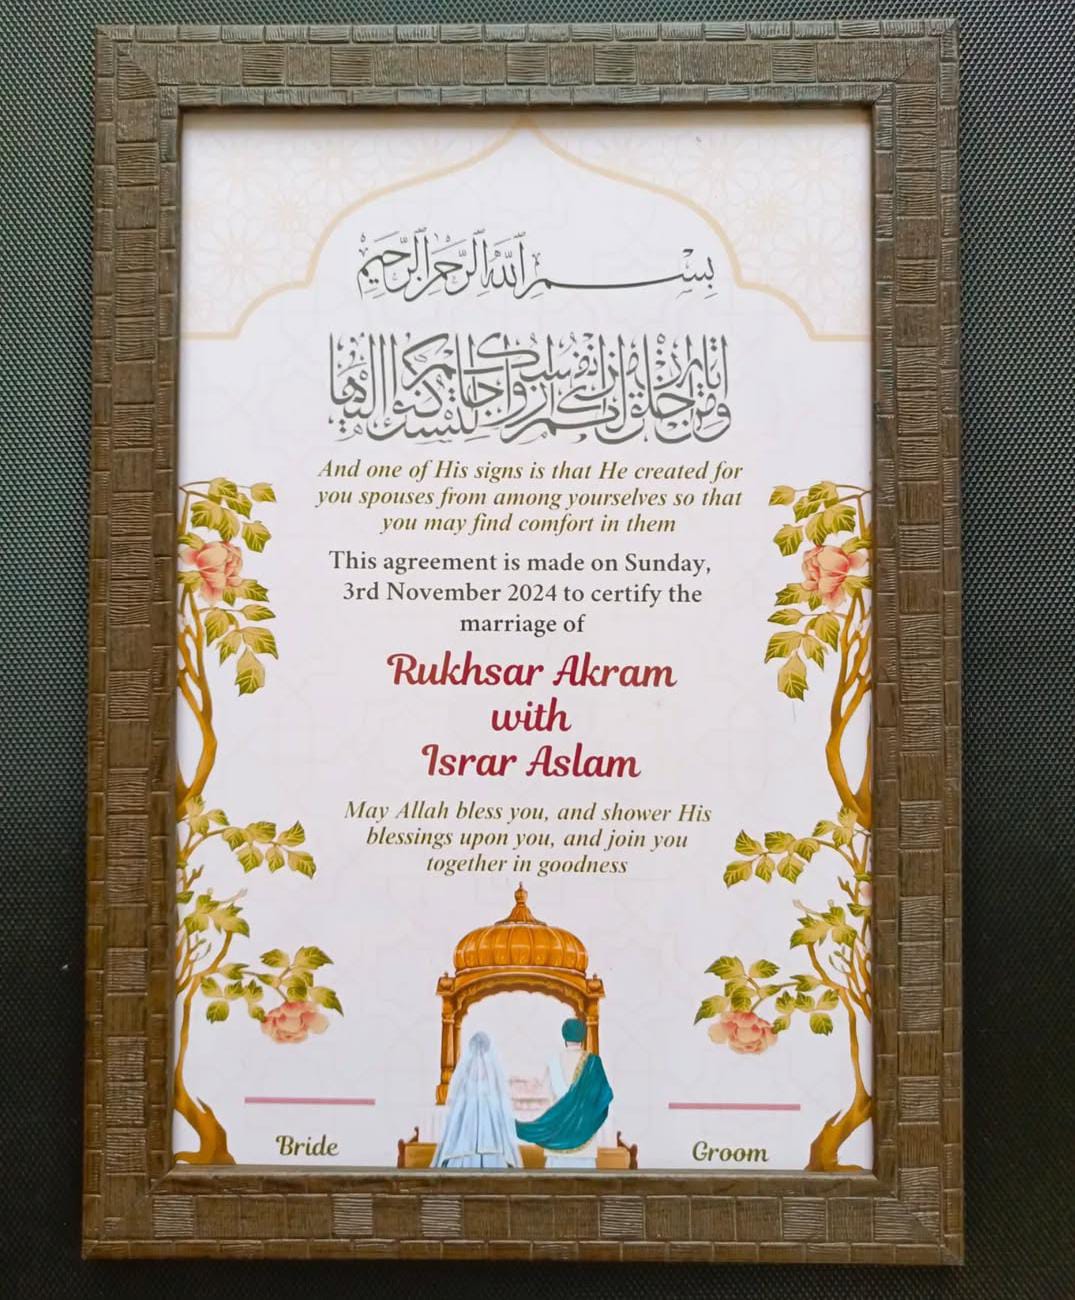 بسم الله الرحمن الرحيم
ومن آياته أن خلق لكم من أنفسكم أزواجا لتسكنوا إليها
And one of His signs is that He created for
you spouses from among yourselves so that
you may find comfort in them
This agreement is made on Sunday,
3rd November 2024 to certify the
marriage of
Rukhsar Akram
with
Israr Aslam
May Allah bless you, and shower His
blessings upon you, and join you
together in goodness
Bride
Groom